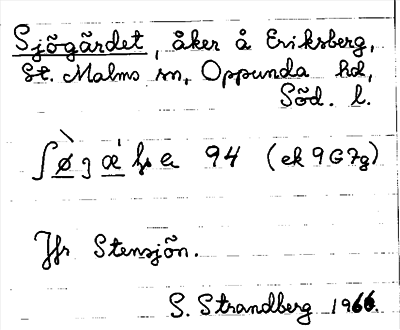 Sjögärdet, åker å Eriksberg,
St. Malms sn, Oppunda hd,
Söd. l.
94 (ek 9G7g)
Jfr Stensjön.
S. Strandberg 1966.